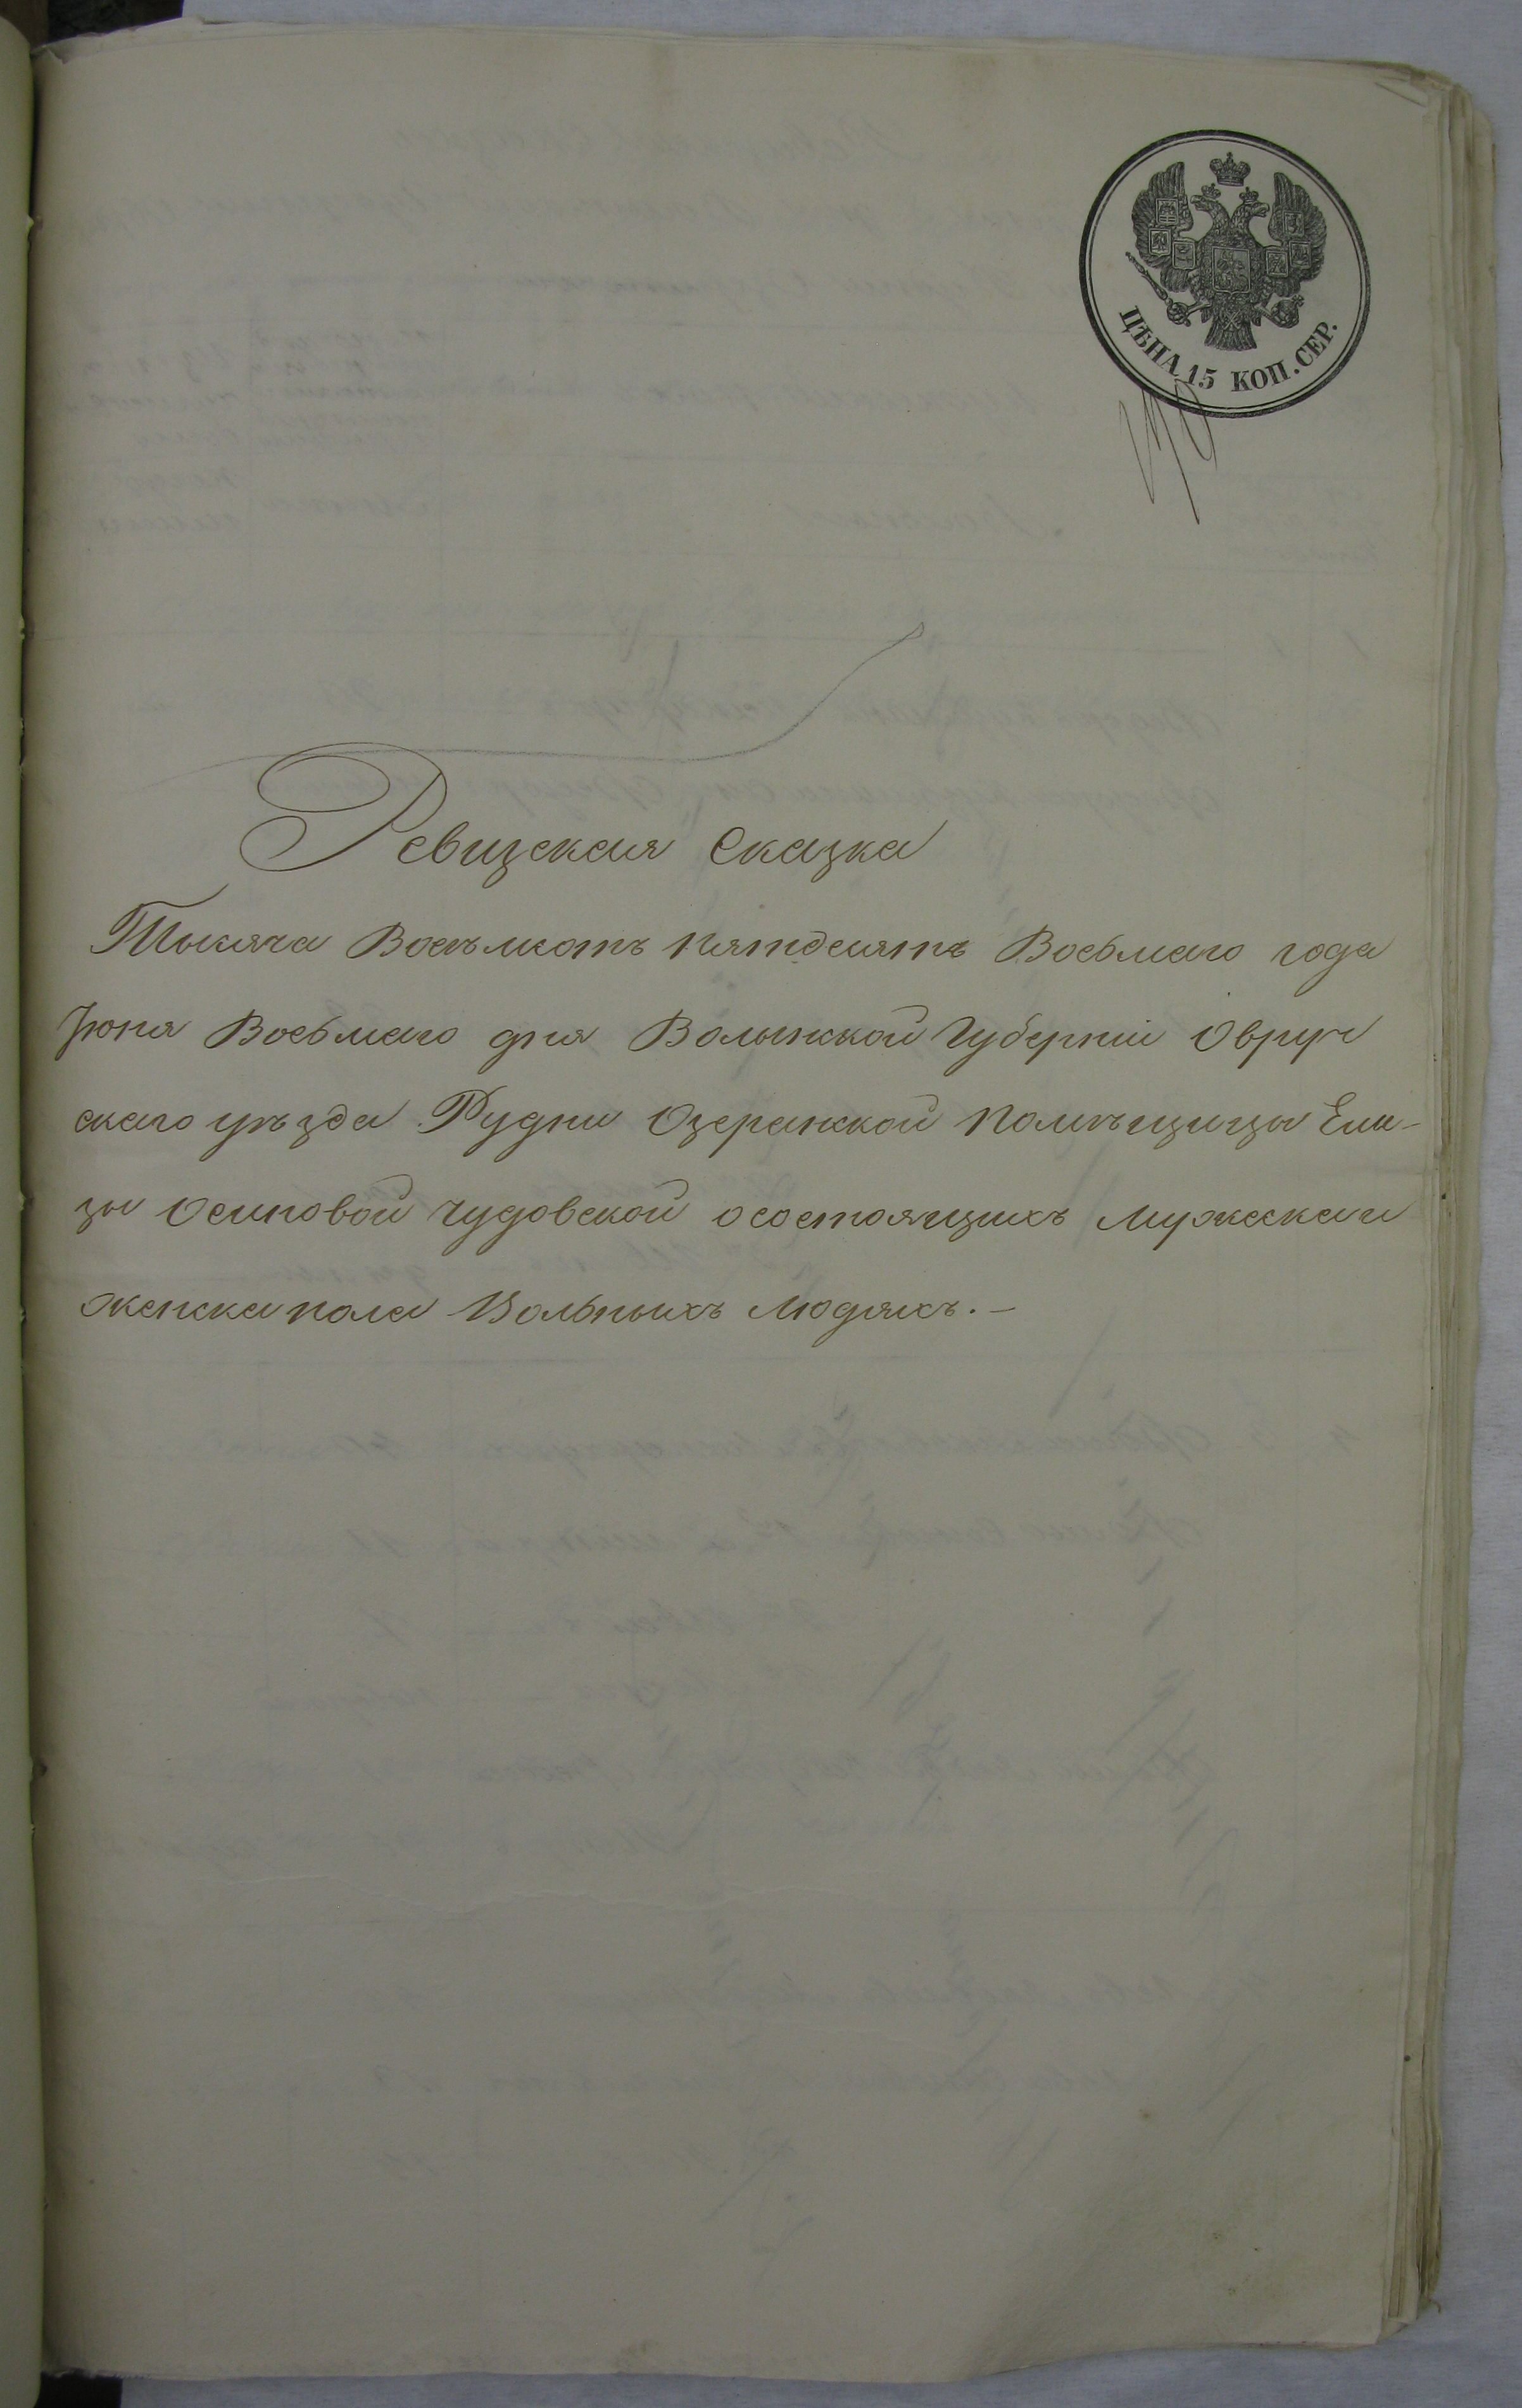 ЦѢНА 15 КОП. СЕР.
Ревизская Сказка
Тысяча Восемьсотъ пятдесятъ Восьмаго года
Iюня Восьмаго дня Волынской Губернiи Овруч
скаго уѣзда Рудни Озерянской Помѣщицы Ели-
зы Осиповой Чудовской о состоящихъ мужеска и
женска пола Вольныхъ людяхъ.-